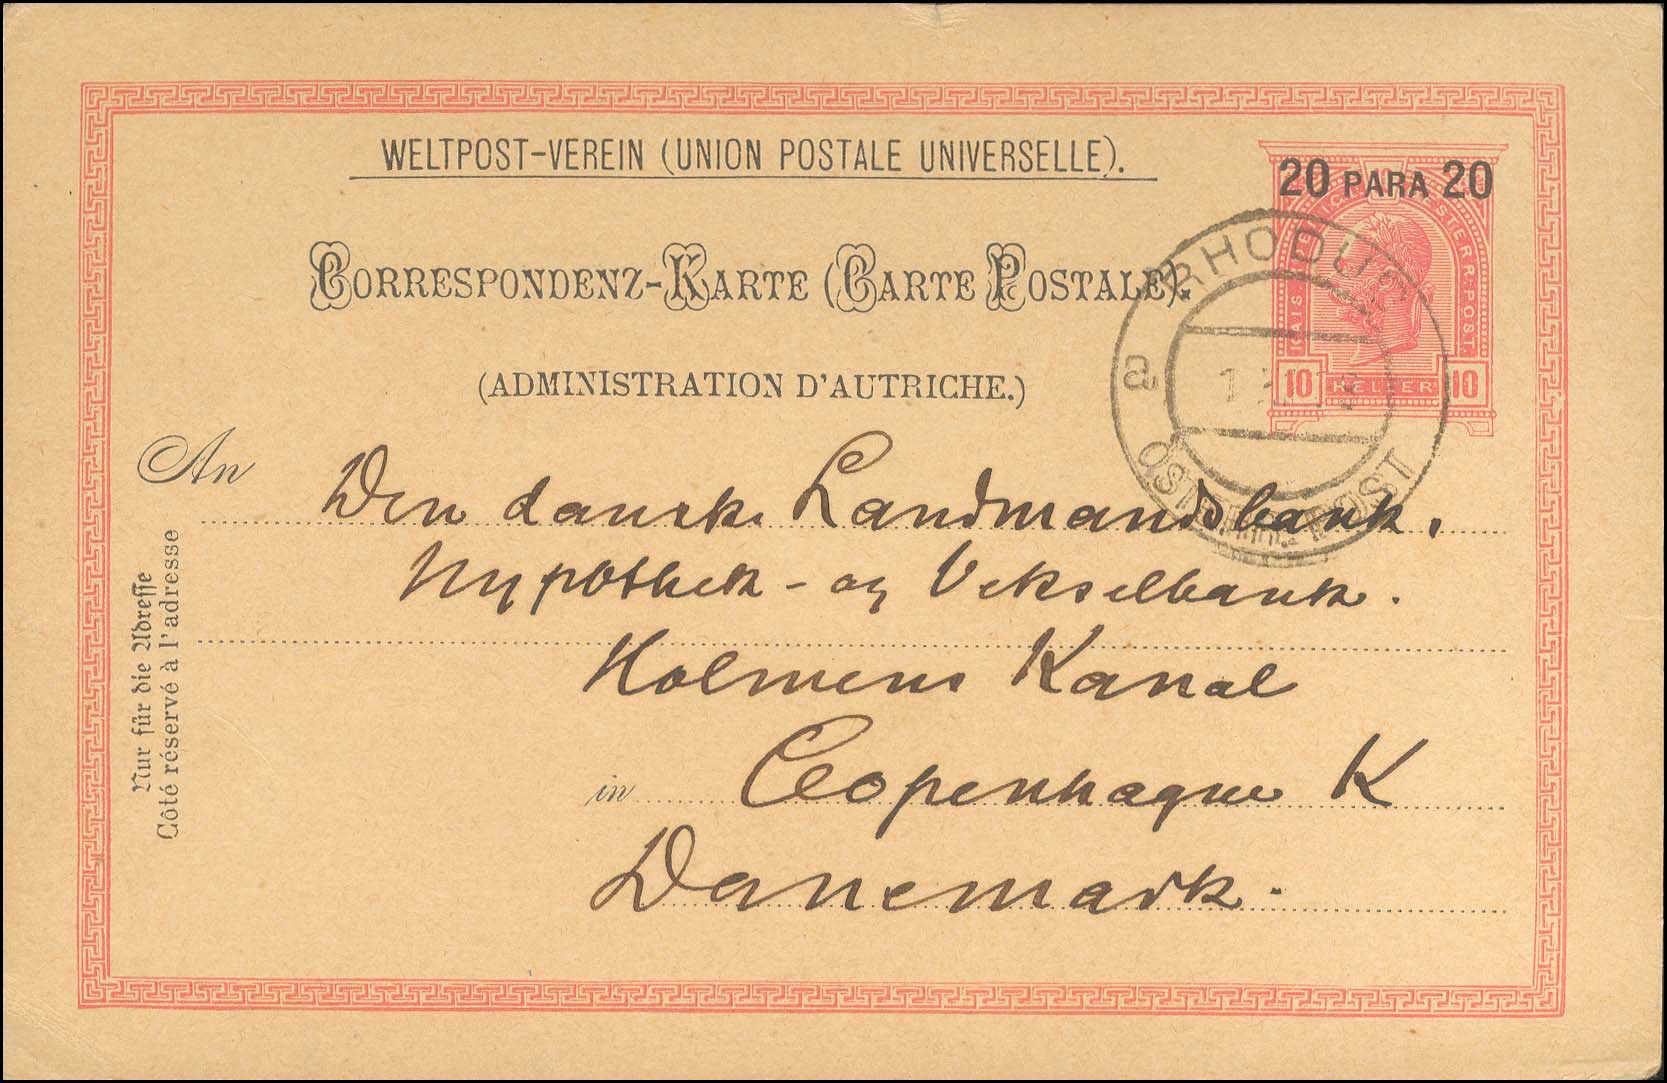 WELTPOST-VEREIN (UNION POSTALE UNIVERSELLE).
20 PARA 20
KAIS. KÖNIGL. OESTERR. POST.
10 HELLER 10
CORRESPONDENZ-KARTE (CARTE POSTALE).
(ADMINISTRATION D'AUTRICHE.)
RHODUS
a
ÖSTERR. POST
An
Den danske Landmandsbank.
Hypothek- og Vekselbank.
Holmens Kanal
in Copenhague K
Danemark.
Nur für die Adresse
Côté réservé à l'adresse